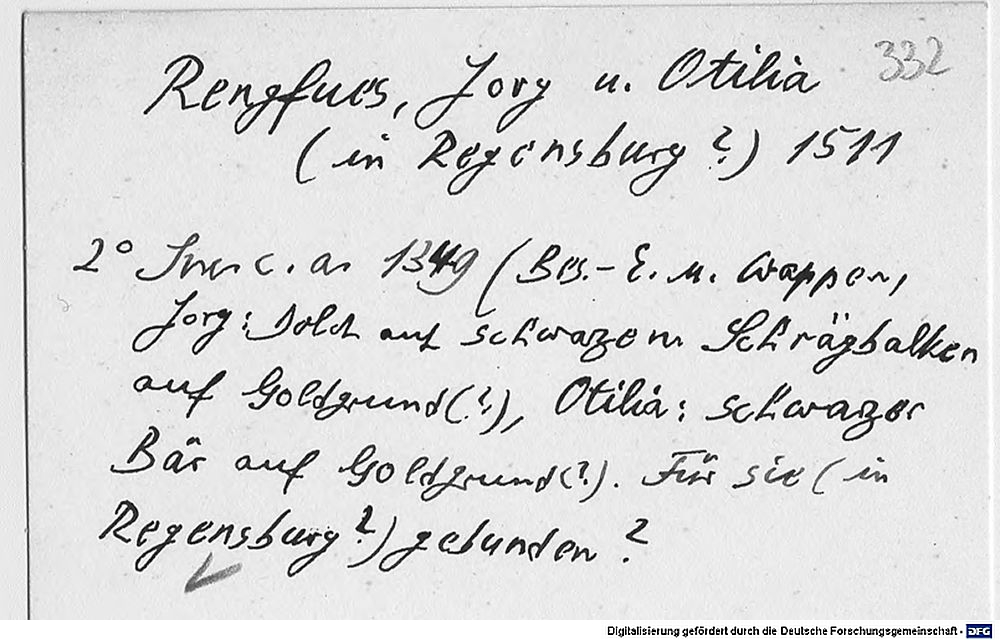 332
Rengfues, Jorg u. Otilia
(in Regensburg?) 1511
2° Inc. c. a. 1349 (Bes.-E. m. Wappen,
Jorg: Dolch auf schwarzem Schrägbalken
auf Goldgrund(?), Otilia: schwarzer
Bär auf Goldgrund(?). Für sie (in
Regensburg?) gebunden?
Digitalisierung gefördert durch die Deutsche Forschungsgemeinschaft - DFG